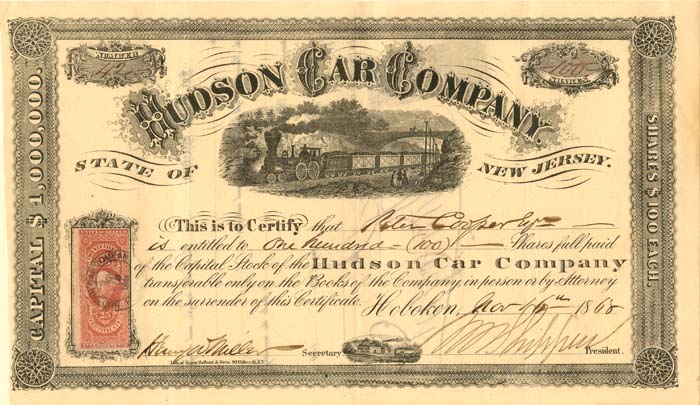 NUMBER
SHARES
HUDSON CAR COMPANY.
STATE OF NEW JERSEY.
CAPITAL $1,000,000.
SHARES $100 EACH.
This is to Certify that Peter Cooper Esq
is entitled to One Hundred (100) Shares full paid
of the Capital Stock of the Hudson Car Company
transferable only on the Books of the Company, in person or by Attorney
on the surrender of this Certificate. Hoboken, Nov 1868
Secretary
President.
25